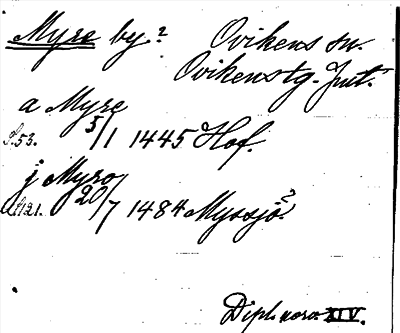 Myre by? Ovikens sn.
Ovikenstg. Jmt.
a Myre
S. 53. 5/1 1445 Hof.
j Myro
S. 121. 20/7 1484 Myssjö?
Dipl. norv. XIV.